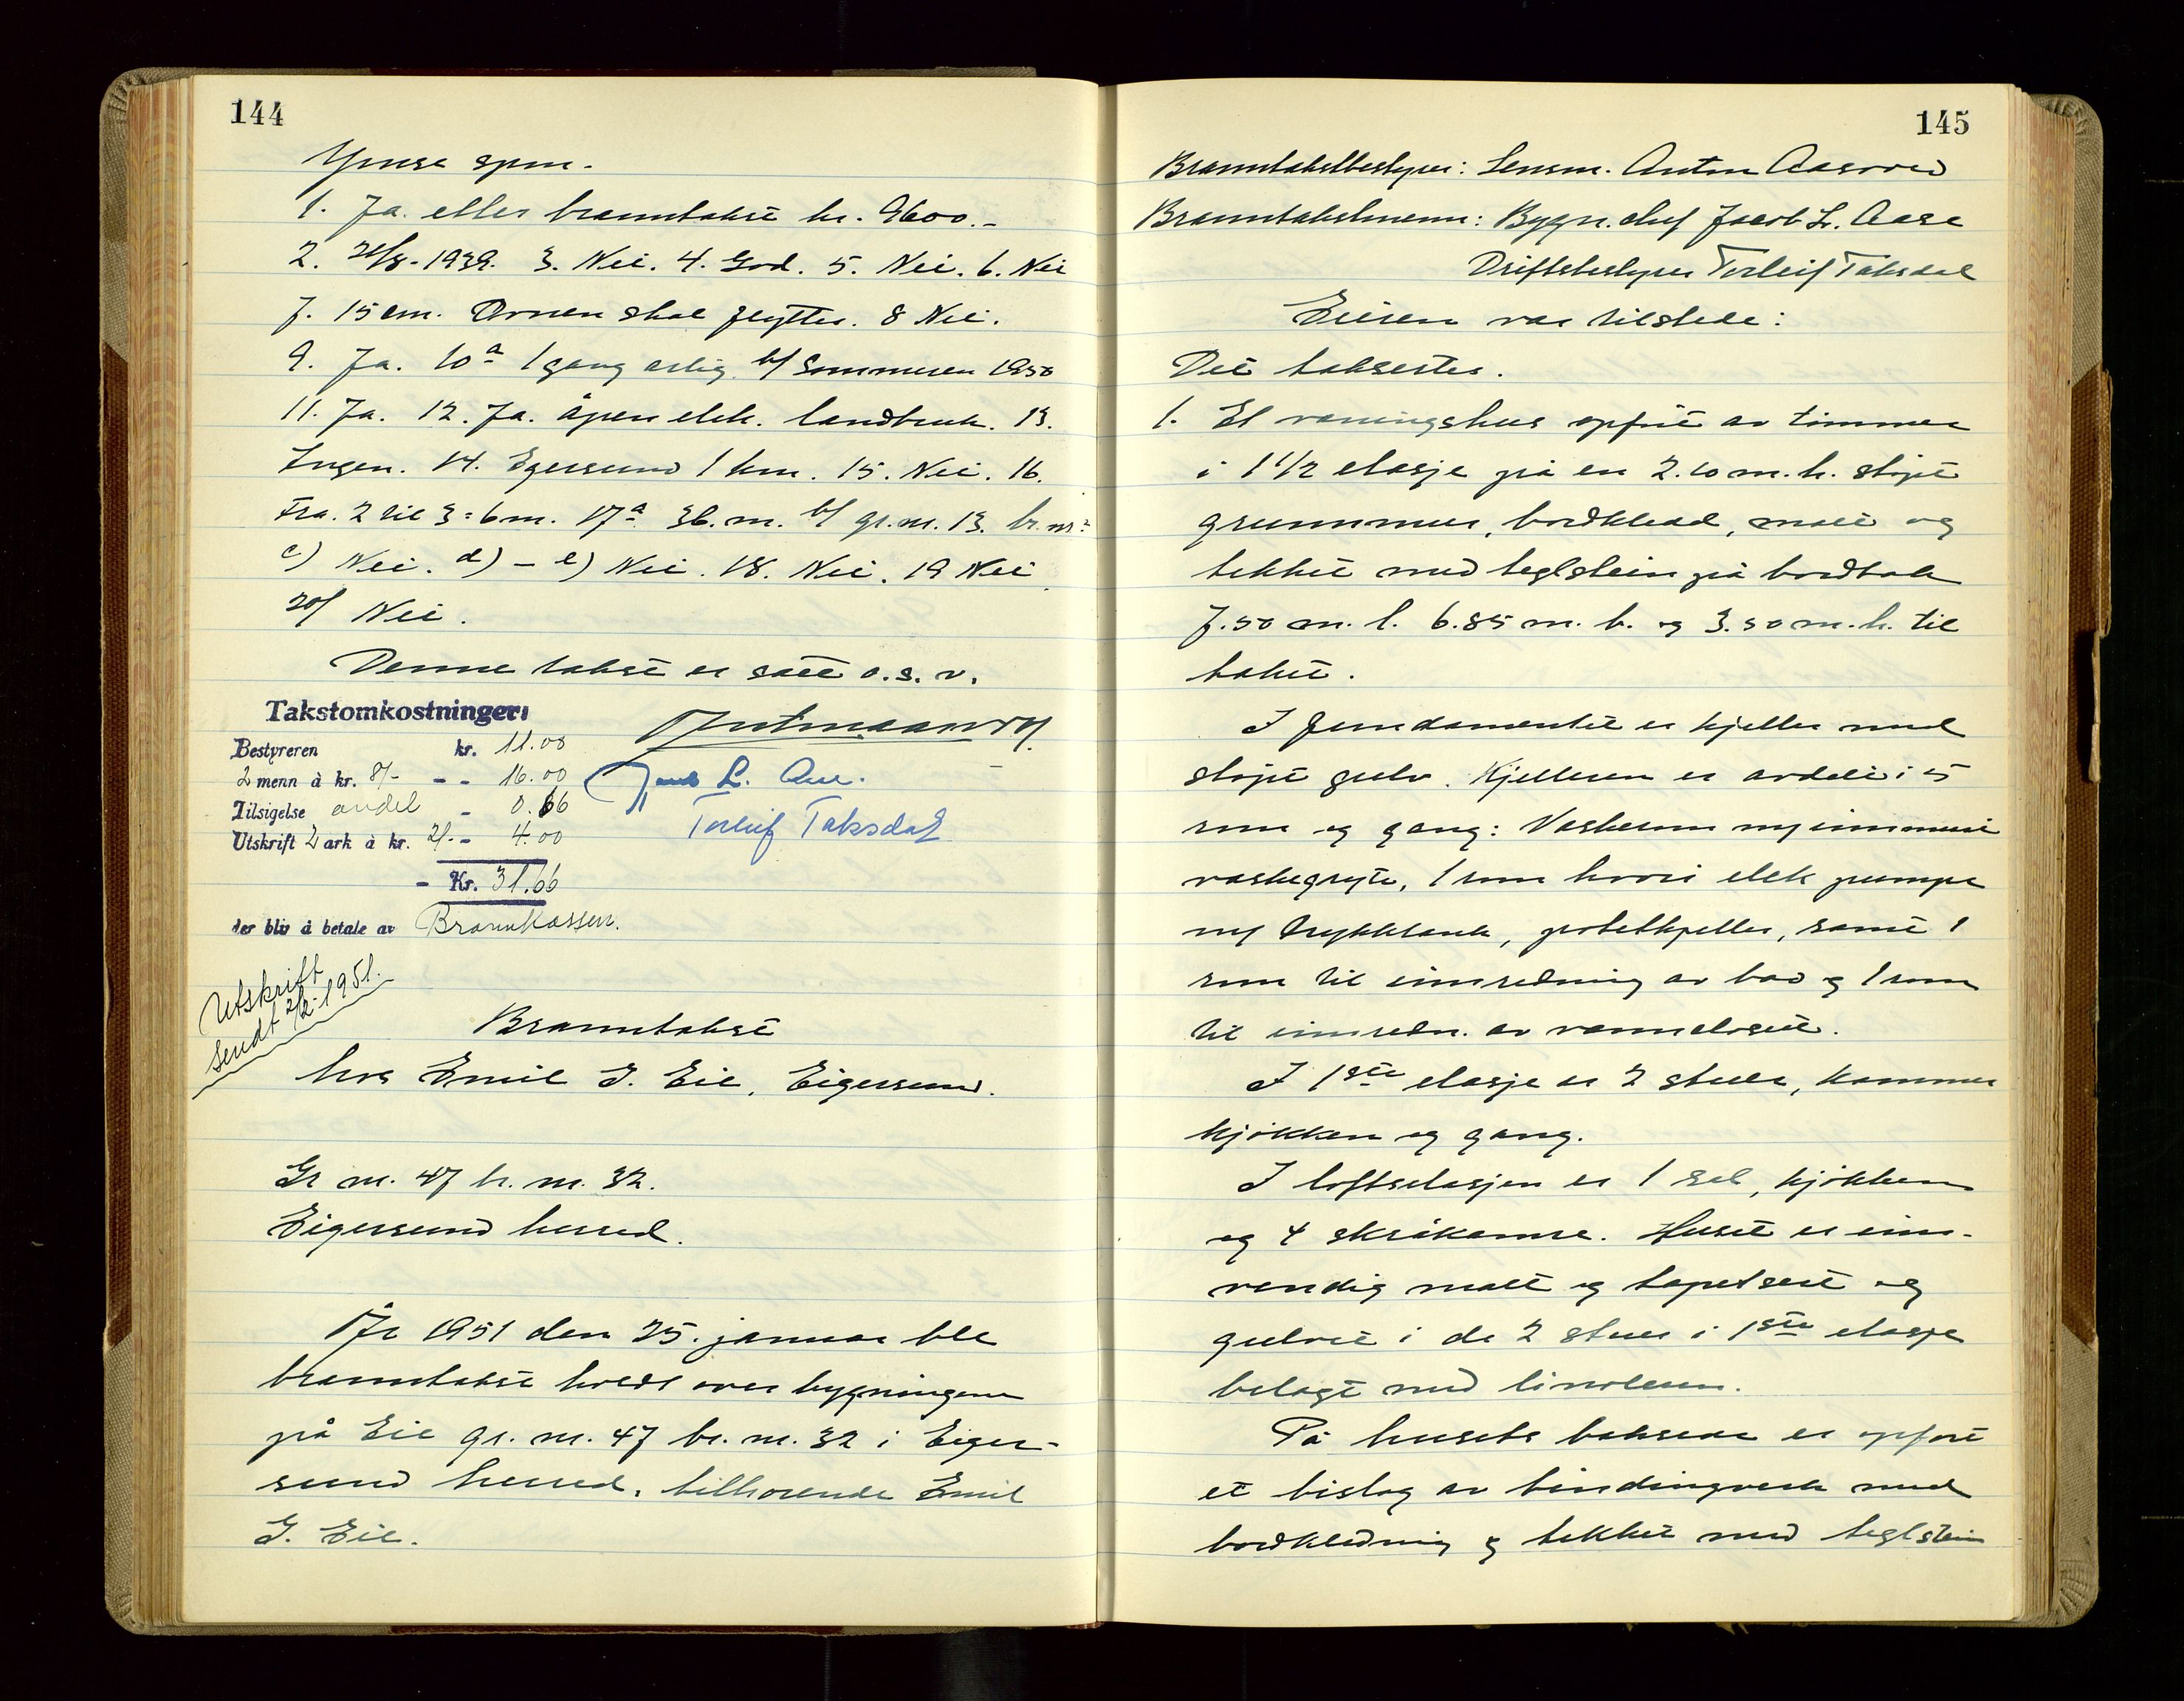 144
Ymse spm.
1. Ja. etter branntakst kr. 9600.-
2. 21/8-1939. 3. Nei. 4. God. 5. Nei. 6. Nei
7. 15 cm. Ovnen skal flyttes. 8 Nei.
9. Ja. 10 a 1 gang årlig b/ Sommeren 1950
11. Ja. 12. Ja. åpen elek. landbruk. 13.
Ingen. 14. Egersund 1 km. 15. Nei. 16.
Fra. 2 til 3 = 6 m. 17 a 36. m. b/ gr. nr. 13. br. nr. 2
c) Nei. d) - e) Nei. 18. Nei. 19 Nei
20/ Nei.
Denne takst er satt o. s. v.
Takstomkostninger:
Bestyreren kr. 11.00
2 menn à kr. 8/- - - 16.00
Tilsigelse andel - 0.66
Utskrift 2 ark à kr. 2/- - 4.00
- Kr. 31.66
der blir å betale av Brannkassen.
Jacob L. Aase.
Torleif Taksdal
Utskrift
sendt 2/2-1951.
Branntakst
hos Emil G. Eie, Eigersund.
Gr nr. 47 br. nr. 32.
Eigersund herred.
År 1951 den 25. januar ble
branntakst holdt over bygningene
på Eie gr. nr. 47 br. nr. 32 i Eiger-
sund herred, tilhørende Emil
G. Eie.
145
Branntakstbestyrer: Lensm. Anton Aasrød
Branntakstmenn: Bygn. chef Jacob L. Aase
Driftsbestyrer Torleif Taksdal
Eieren var tilstede:
Det takseres.
1. Et våningshus opført av tømmer
i 1 1/2 etasje på en 2.10 m. h. støpt
grunnmur, bordkledd, malt og
tekket med teglstein på bordtak
7.50 m. l. 6.85 m. b. og 3.50 m. h. til
taket.
I fundamentet er kjeller med
støpt gulv. Kjelleren er avdelt i 5
rum og gang: Vaskerum m/ innmurt
vaskegryte, 1 rum hvori elek pumpe
m/ trykktank, potetkjeller, samt 1
rum til innredning av bad og 1 rum
til innredn. av vannclosett.
I 1ste etasje er 2 stuer, kammer
kjøkken og gang.
I loftsetasjen er 1 sal, kjøkken
og 4 skråkamre. Huset er inn-
vendig malt og tapetsert og
gulvet i de 2 stuer i 1ste etasje
belagt med linoleum.
På husets bakside er opført
et bislag av bindingverk med
bordkledning og tekket med teglstein